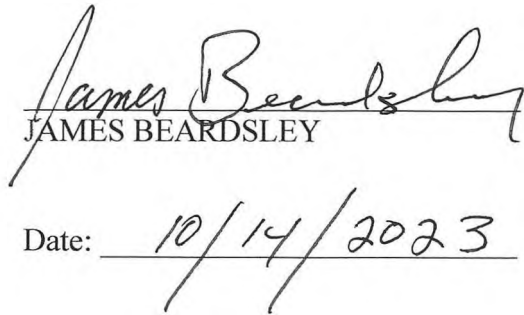 James Beardsley
JAMES BEARDSLEY
Date: 10/14/2023